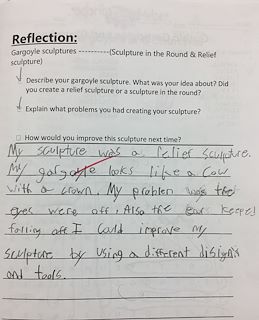 Reflection:
Gargoyle sculptures ----------(Sculpture in the Round & Relief
sculpture)
Describe your gargoyle sculpture. What was your idea about? Did
you create a relief sculpture or a sculpture in the round?
Explain what problems you had creating your sculpture?
How would you improve this sculpture next time?
My sculpture was a relief sculpture.
My gargoyle looks like a cow
with a crown. My problem was the
eyes were off. Also the ears keeped
falling off I could improve my
sculpture by using a different disigns
and tools.